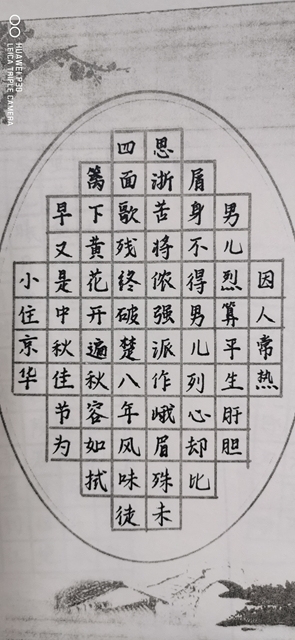 小住京华
早又是中秋佳节为
篱下黄花开遍秋容如拭
四面歌残终破楚八年风味徒
思浙苦将侬强派作峨眉殊未
屑身不得男儿列心却比
男儿烈算平生肝胆
因人常热
HUAWEI P30
LEICA TRIPLE CAMERA